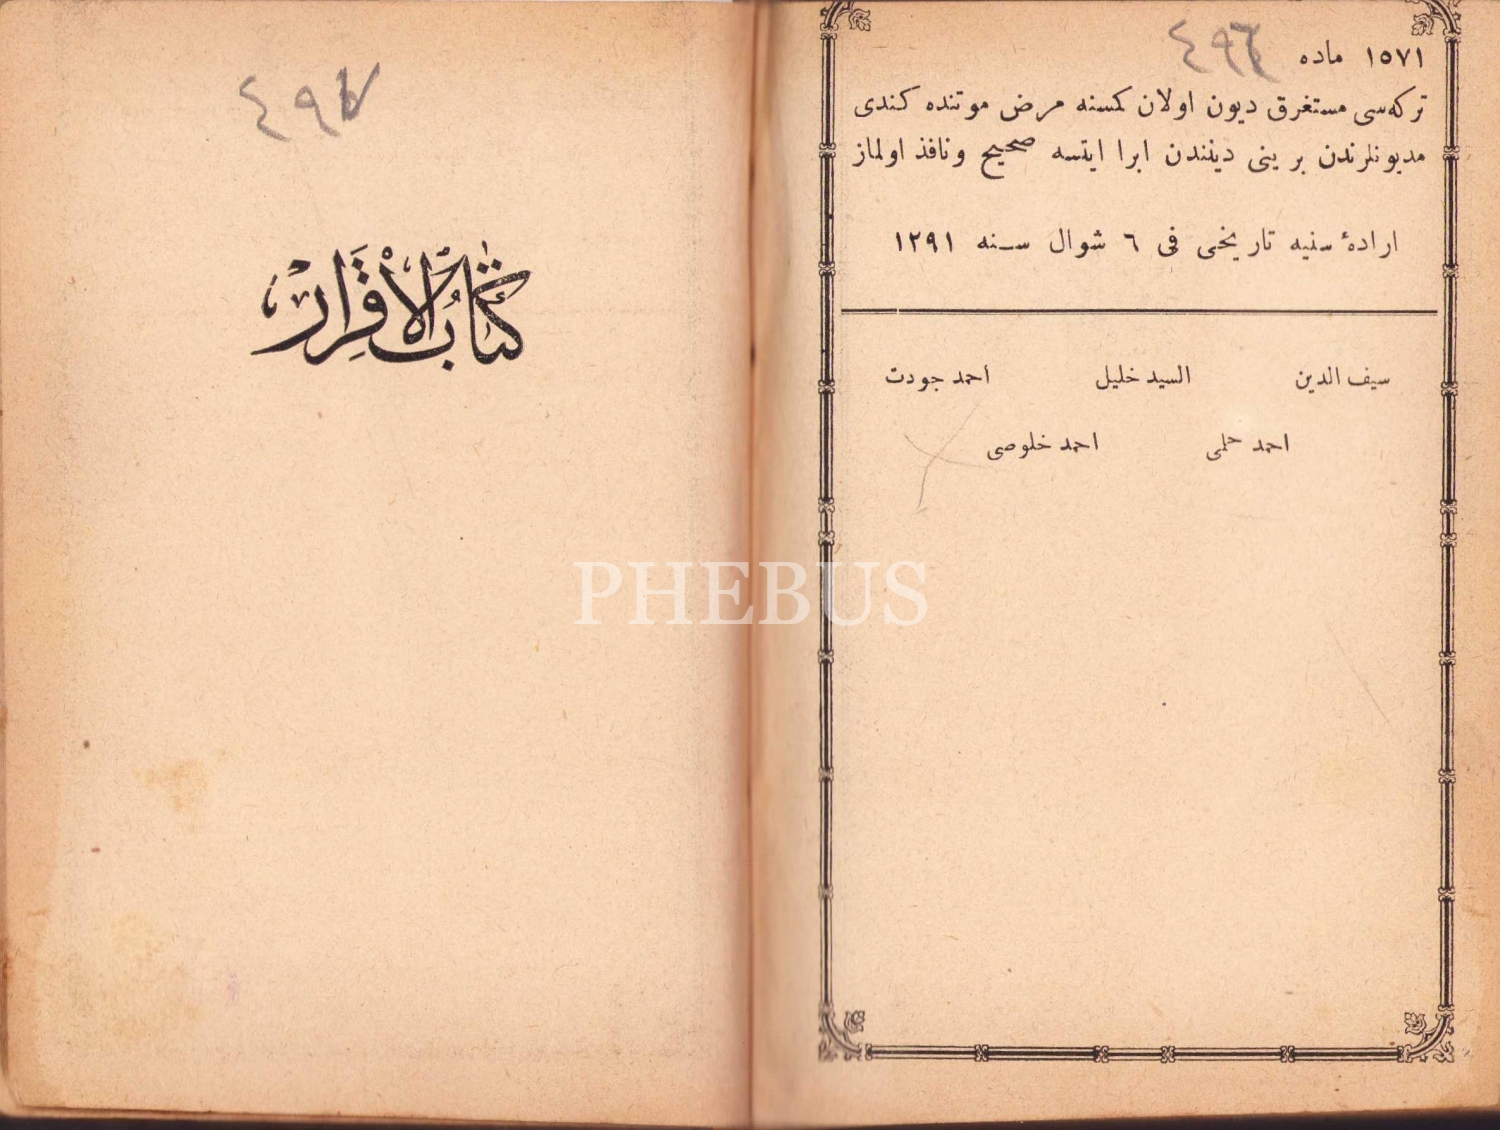 ٤٩٦
١٥٧١ ماده
تركه‌سى مستغرق ديون اولان كمسنه مرض موتنده كندى
مديونلرندن برينى دينندن ابرا ايتسه صحيح ونافذ اولماز
ارادۀ سنيه تاريخى فى ٦ شوال سنه ١٢٩١
سيف الدين السيد خليل احمد جودت
احمد حلمى احمد خلوصى
كتاب الاقرار
PHEBUS